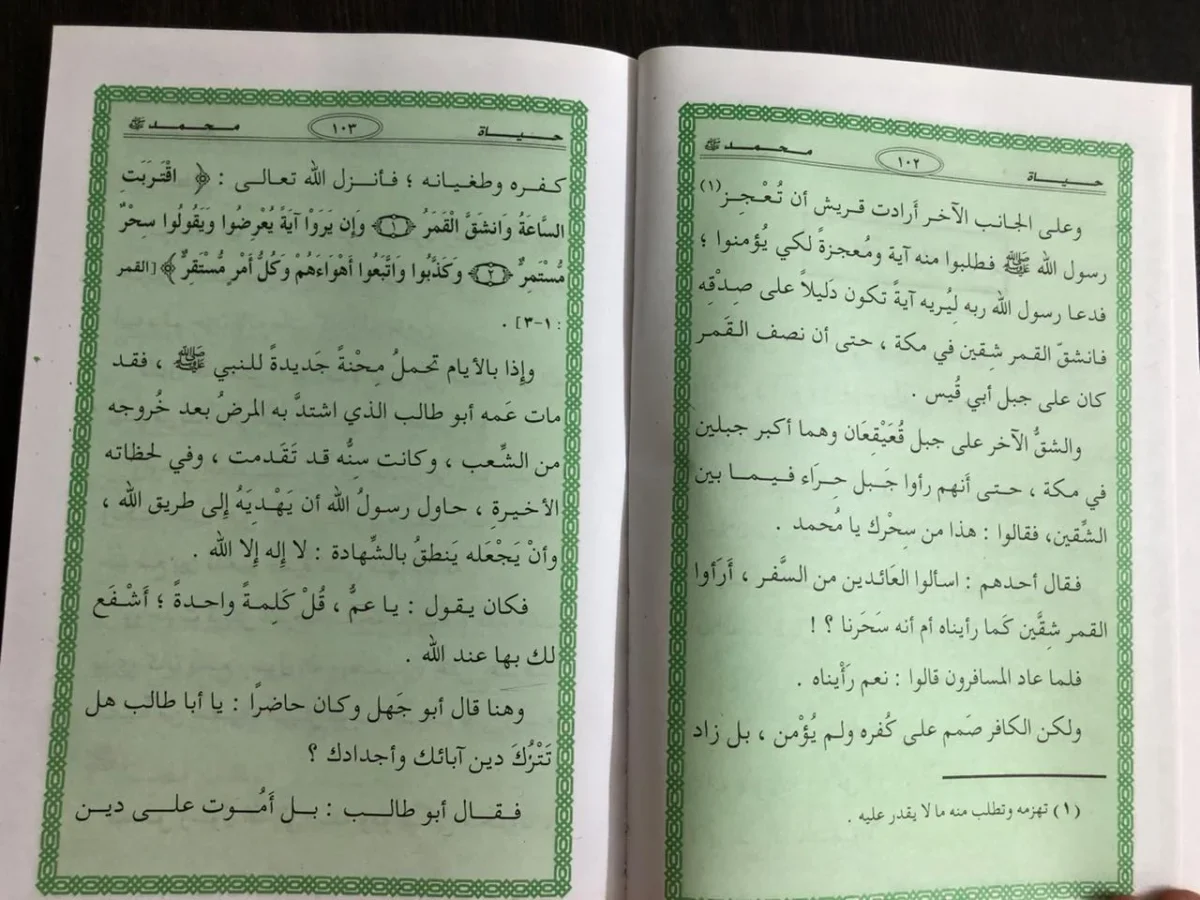 حياة ١٠٢ محمد ﷺ
وعلى الجانب الآخر أَرادت قريش أن تُعْجِز(١)
رسول الله ﷺ فطلبوا منه آية ومُعجزةً لكي يُؤمنوا ؛
فدعا رسول الله ربه لِيُريه آيةً تكون دَليلاً على صِدْقِه
فانشقّ القمر شِقين في مكة ، حتى أن نصف القَمر
كان على جبل أبي قُيس .
والشقُّ الآخر على جبل قُعَيْقِعَان وهما أكبر جبلين
في مكة ، حتى أَنهم رأوا جَبل حِرَاء فيما بين
الشِّقين، فقالوا : هذا من سِحْرك يا مُحمد .
فقال أحدهم : اسألوا العَائدين من السَّفر ، أَرَأوا
القمر شِقَّين كَما رأيناه أم أنه سَحَرنا ؟ !
فلما عاد المسافرون قالوا : نعم رَأَيناه .
ولكن الكافر صَمم على كُفره ولم يُؤْمن ، بل زاد
(١) تهزمه وتطلب منه ما لا يقدر عليه .
حياة ١٠٣ محمد ﷺ
كفره وطغيانه ؛ فأنزل الله تعالى : ﴿ اقْتَرَبَتِ
السَّاعَةُ وَانشَقَّ الْقَمَرُ ﴿١﴾ وَإِن يَرَوْا آيَةً يُعْرِضُوا وَيَقُولُوا سِحْرٌ
مُّسْتَمِرٌّ ﴿٢﴾ وَكَذَّبُوا وَاتَّبَعُوا أَهْوَاءَهُمْ وَكُلُّ أَمْرٍ مُّسْتَقِرٌّ ﴾ [القمر
: ١-٣] .
وإِذا بالأيام تحملُ مِحْنةً جَديدةً للنبي ﷺ ، فقد
مات عَمه أبو طالب الذي اشتدَّ به المرضُ بعد خُروجه
من الشِّعب ، وكانت سِنُّه قد تَقَدمت ، وفي لحظاته
الأخيرةِ ، حاول رسولُ الله أن يَهْديَهُ إِلى طريق الله ،
وأنْ يَجْعَله يَنطقُ بالشِّهادة : لا إِله إِلا الله .
فكان يقول : يا عمُّ ، قُلْ كَلِمةً واحدةً ؛ أَشْفَع
لك بها عند الله .
وهنا قال أبو جَهل وكان حاضرًا : يا أبا طالب هل
تَتْرُكَ دين آبائك وأجدادك ؟
فقال أبو طالب : بل أَمُوت على دين